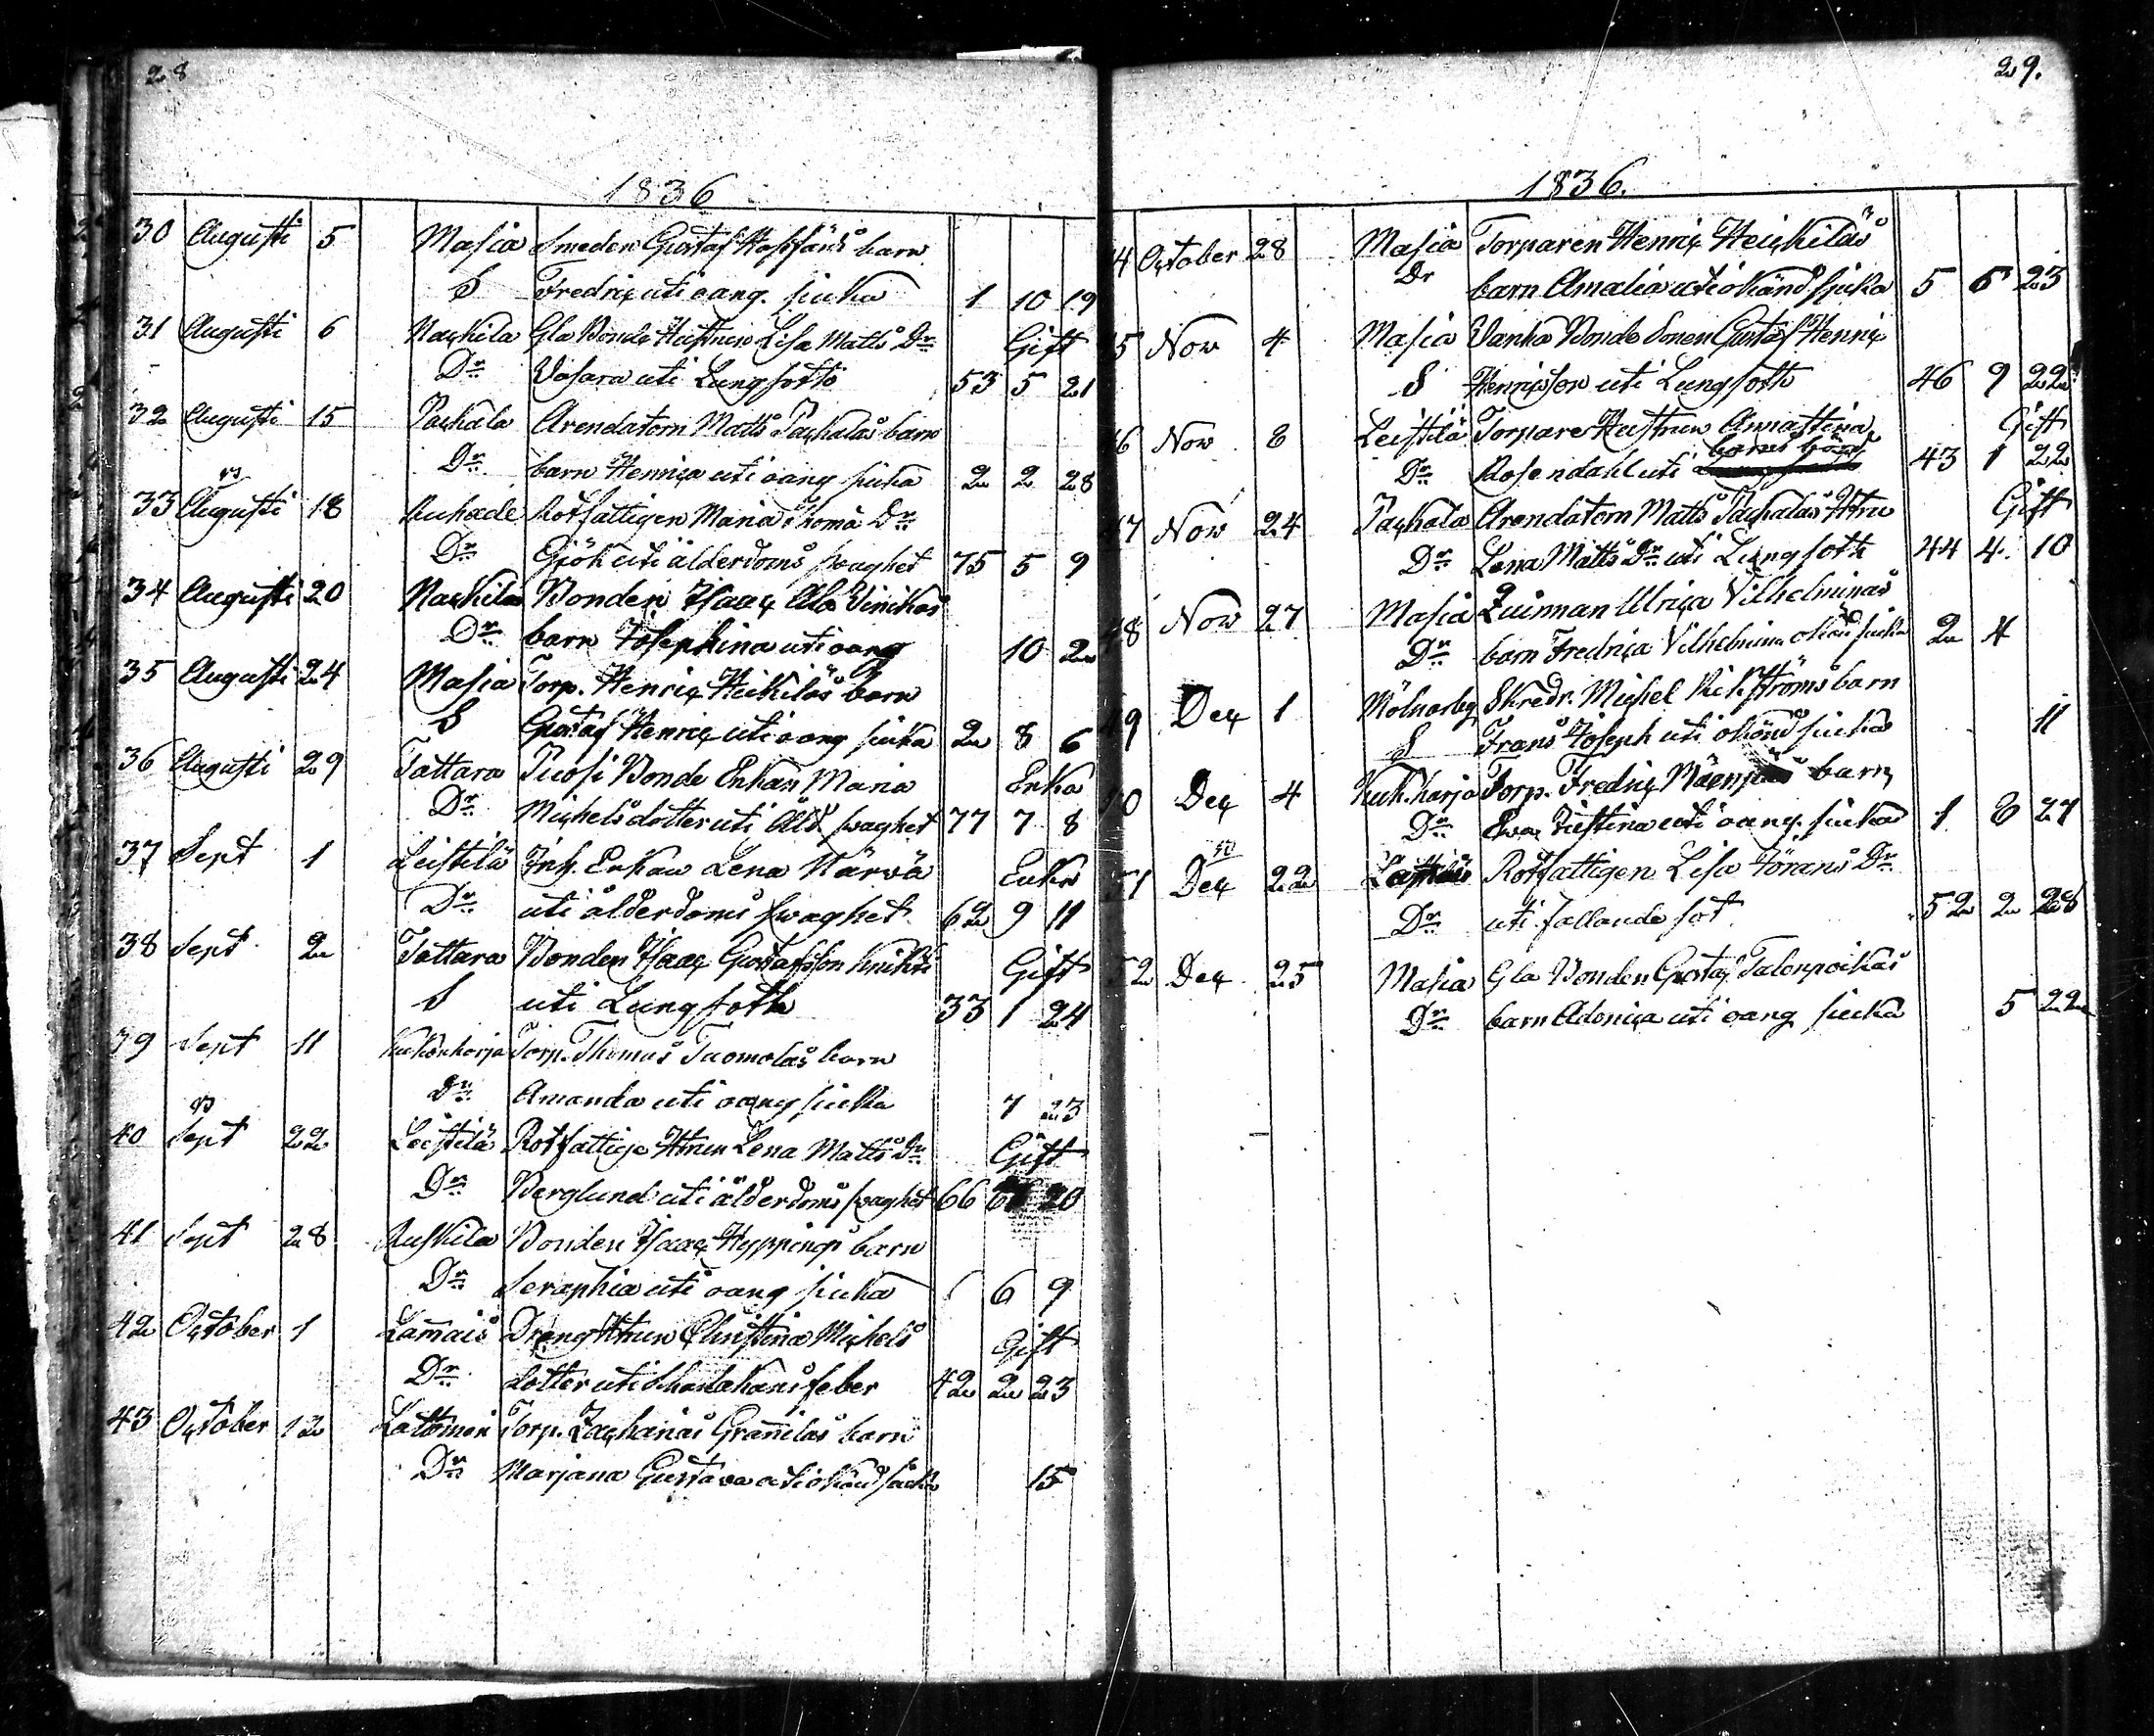 28
1836
30 Augusti 5 Masia Smeden Gustaf barn
S Fredric uti oang. siuka 1 10 19
31 Augusti 6 Nackila Gla Bonde Hustrun Lisa Matts Dr Gift
Dr Vasara uti Lungsotts 53 5 21
32 Augusti 15 Packala Arendatorn Matts Packalas barn
Dr barn Henrica uti oang siuka 2 2 28
33 Augusti 18 Rotfattigen Maria Thomæ Dr
Dr Gjök uti ålderdoms swaghet 75 5 9
34 Augusti 20 Nackila Bonden Isaac Ala Vinikas
Dr barn Josephina uti oang 10 2
35 Augusti 24 Masia Torp. Henric Heikiläs barn
S Gustaf Henric uti oang siuka 2 8 6
36 Augusti 29 Tattara Tuosi Bonde Enkan Maria Enka
Dr Michelsdotter uti Åld swaghet 77 7 8
37 Sept 1 Leistilä Inh. Enkan Lena Närvä Enka
Dr uti ålderdoms swaghet 62 9 11
38 Sept 2 Tattara Bonden Isaac Gustafsson Gift
S uti Lungsott 33 1 24
39 Sept 11 Kuckonharja Torp. Thomas Tuomolas barn
Dr Amanda uti oang siuka 7 23
40 Sept 22 Leistilä Rotfattige Htrun Lena Matts Dr Gift
Dr Berglund uti ålderdoms swaghet 66 20
41 Sept 28 Ruskila Bonden Isaac Hyppings barn
Dr Seraphia uti oang siuka 6 9
42 October 1 Lammais Dräng Htrun Christina Michels Gift
Dr dotter uti feber 42 2 23
43 October 12 Lattomeri Torp. Zacharias Grannilas barn
Dr Marjana Gustava uti okänd siuka 15
29.
1836.
4 October 28 Masia Torparen Henric Heickiläs
Dr barn Amalia uti okänd siuka 5 6 23
5 Nov 4 Masia Vanka Bonde Sonen Gustaf Henric
S Henricson uti Lungsott 46 9 22
6 Nov 8 Leistilä Torpare Hustrun Annastina Gift
Dr Rosendahl uti barns börd 43 1 22
47 Nov 24 Packala Arendatorn Matts Packalas Htru Gift
Dr Lena Matts Dr uti Lungsott 44 4 10
48 Nov 27 Masia Quinnan Ulrica Vilhelminas
Dr barn Fredrica Vilhelmina okänd siuka 2 4
49 Dec 1 Mölnarby Skredr. Michel Rickströms barn
S Frans Joseph uti okänd siuka 11
50 Dec 4 Kuck.harja Torp. Fredric Mäenpääs barn
Dr Ewa Justina uti oang. siuka 1 8 27
51 Dec 22 Rotfattigen Lisa Jörans Dr
Dr uti fallande sot 52 2 28
52 Dec 25 Masia Gla Bonden Gustaf Talonpoikas
Dr barn Adonica uti oang siuka 5 22